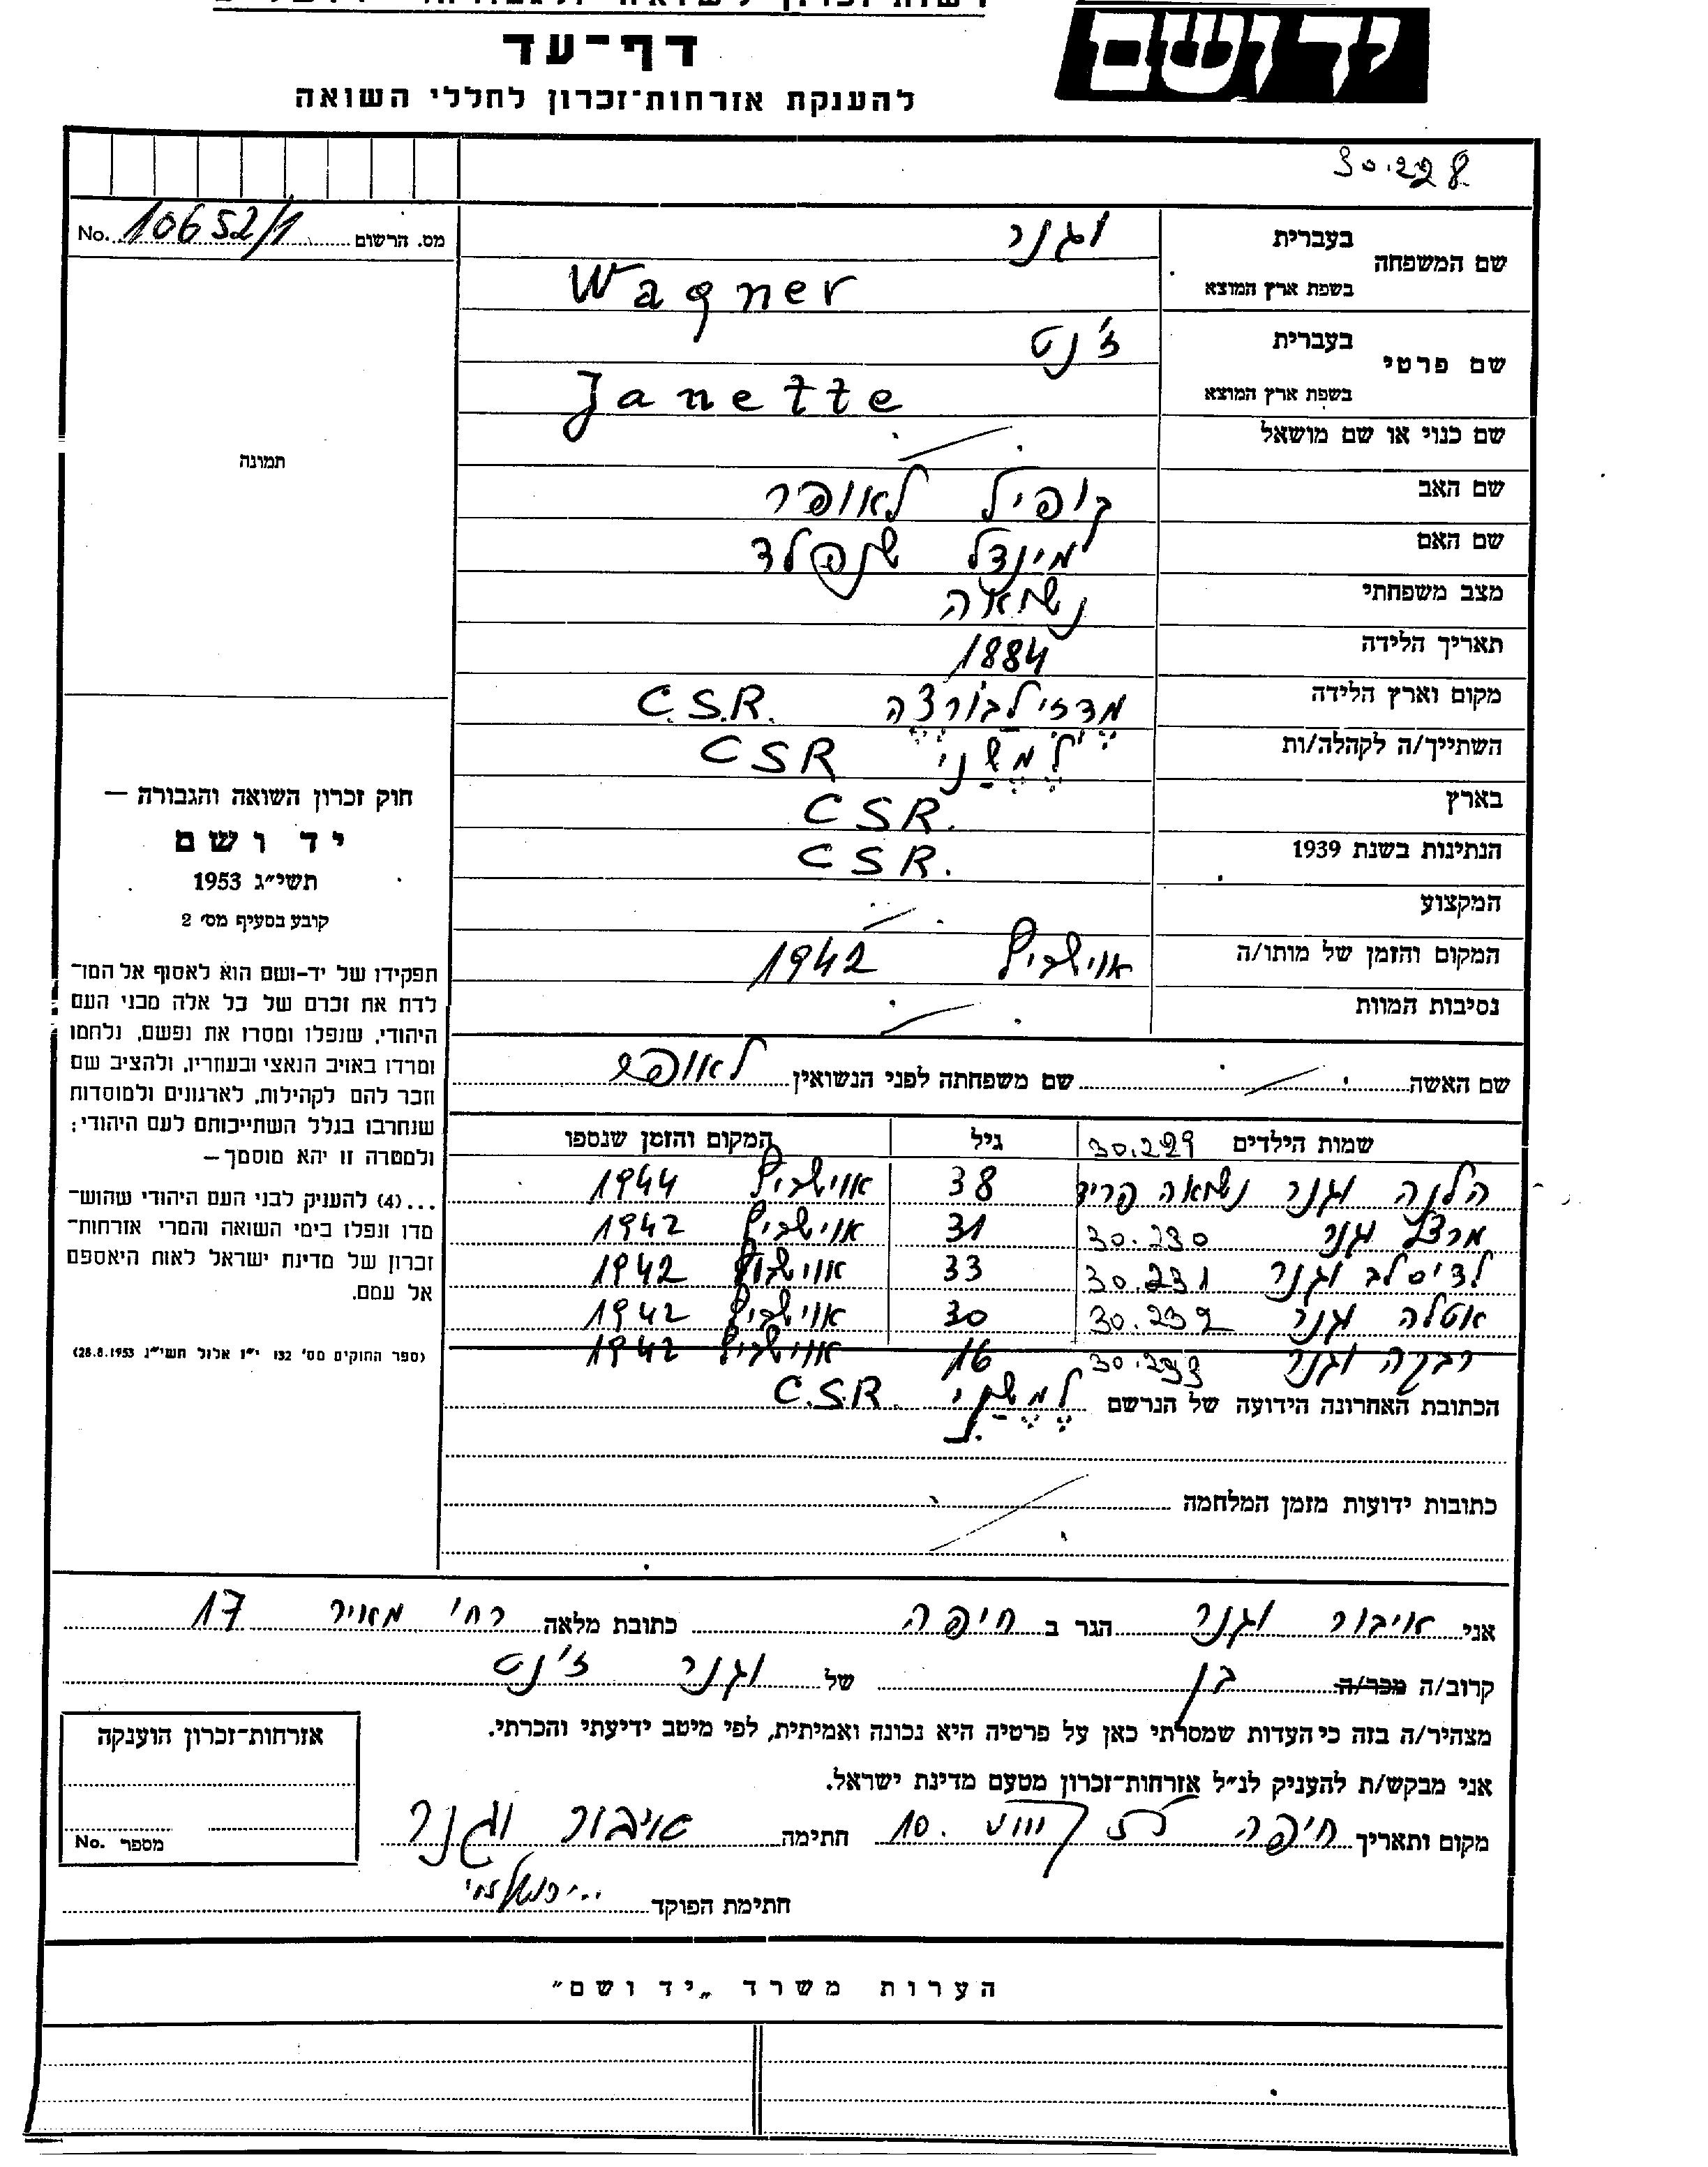 יד ושם
דף־עד
להענקת אזרחות־זכרון לחללי השואה
30.228
No. 10652/1 מס. הרשום
שם המשפחה
בעברית וגנר
בשפת ארץ המוצא Wagner
שם פרטי
בעברית ז'נט
בשפת ארץ המוצא Janette
שם כנוי או שם מושאל
תמונה
שם האב לאופר
שם האם מינדל שנפלד
מצב משפחתי נשואה
תאריך הלידה 1884
מקום וארץ הלידה מדזילבורצה C.S.R.
השתייך/ה לקהלה/ות למשני CSR
בארץ CSR.
הנתינות בשנת 1939 CSR.
המקצוע
המקום והזמן של מותו/ה אוישביץ 1942
נסיבות המוות
שם האשה שם משפחתה לפני הנשואין
שמות הילדים 30.229 גיל המקום והזמן שנספו
הלנה וגנר נשואה פריד 38 אוישביץ 1944
מרצל וגנר 30.230 31 אוישביץ 1942
לדיסלב וגנר 30.231 33 אוישביץ 1942
אטלה וגנר 30.232 30 אוישביץ 1942
רבקה וגנר 30.233 16 אוישביץ 1942
הכתובת האחרונה הידועה של הנרשם למשני C.S.R.
כתובות ידועות מזמן המלחמה
חוק זכרון השואה והגבורה —
יד ושם
תשי״ג 1953
קובע בסעיף מס׳ 2
תפקידו של יד–ושם הוא לאסוף אל המו־
לדת את זכרם של כל אלה מבני העם
היהודי, שנפלו ומסרו את נפשם, נלחמו
ומרדו באויב הנאצי ובעוזריו, ולהציב שם
וזכר להם לקהילות, לארגונים ולמוסדות
שנחרבו בגלל השתייכותם לעם היהודי;
ולמטרה זו יהא מוסמך—
...(4) להעניק לבני העם היהודי שהוש־
מדו ונפלו בימי השואה והמרי אזרחות־
זכרון של מדינת ישראל לאות היאספם
אל עמם.
(ספר החוקים מס׳ 132 י״ז אלול תשי״ג 28.8.1953)
אני איבור וגנר הגר ב חיפה כתובת מלאה רח' מאיר 17
קרוב/ה מכר/ה בן של וגנר ז'נט
מצהיר/ה בזה כי העדות שמסרתי כאן על פרטיה היא נכונה ואמיתית, לפי מיטב ידיעתי והכרתי.
אני מבקש/ת להעניק לנ״ל אזרחות־זכרון מטעם מדינת ישראל.
מקום ותאריך חיפה 10. חתימה איבור וגנר
חתימת הפוקד
אזרחות־זכרון הוענקה
מספר No.
הערות משרד „יד ושם״